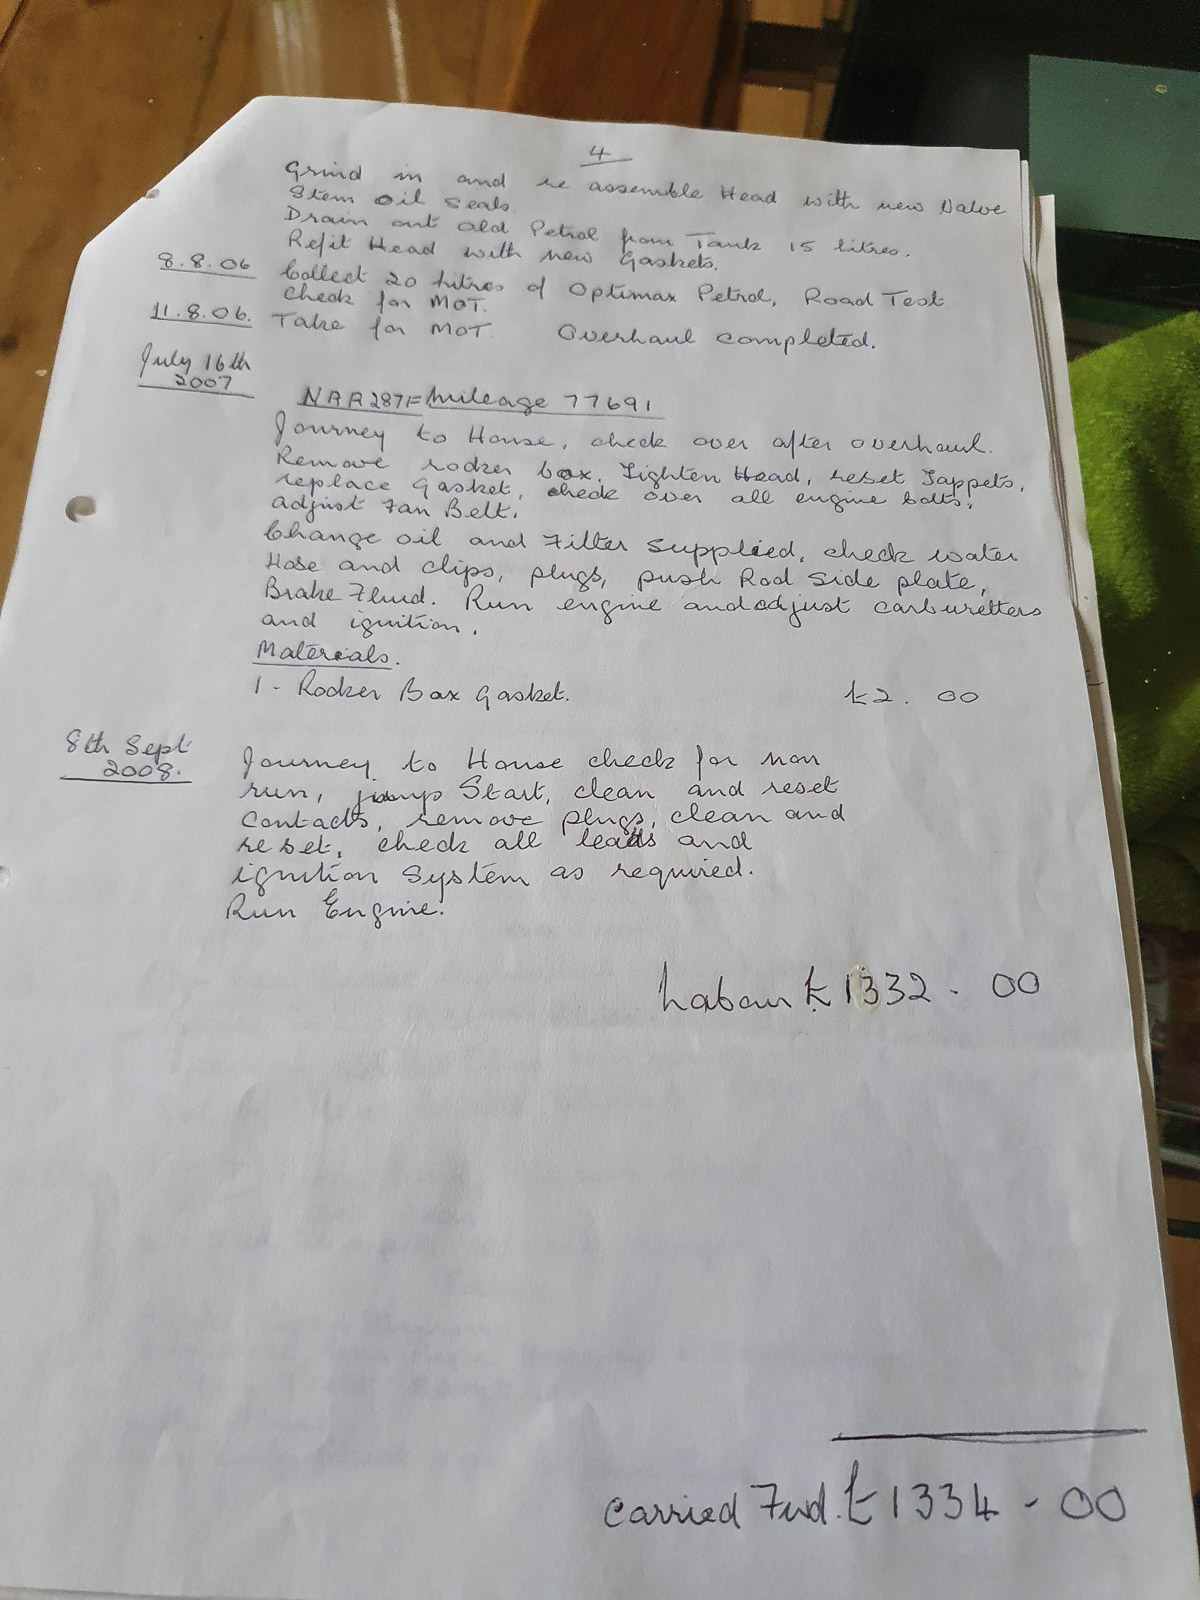 4
Grind in and re assemble Head with new Valve
Stem Oil Seals.
Drain out old Petrol from Tank 15 litres.
Refit Head with new Gaskets.
8.8.06 Collect 20 litres of Optimax Petrol, Road Test
Check for MOT.
11.8.06. Take for MOT. Overhaul completed.
July 16th
2007
NAR 287F Mileage 77691
Journey to House, check over after overhaul.
Remove rocker box, Tighten Head, reset Tappets,
replace Gasket, check over all engine bolts,
adjust Fan Belt.
Change oil and Filter supplied, check water
Hose and clips, plugs, push Rod Side plate,
Brake Fluid. Run engine and adjust carburetters
and ignition.
Materials.
1 - Rocker Box Gasket. £2. 00
8th Sept
2008.
Journey to House check for non
run, jump Start, clean and reset
Contacts, remove plugs, clean and
reset, check all leads and
ignition System as required.
Run Engine.
Labour £1332 - 00
Carried Fwd. £1334 - 00